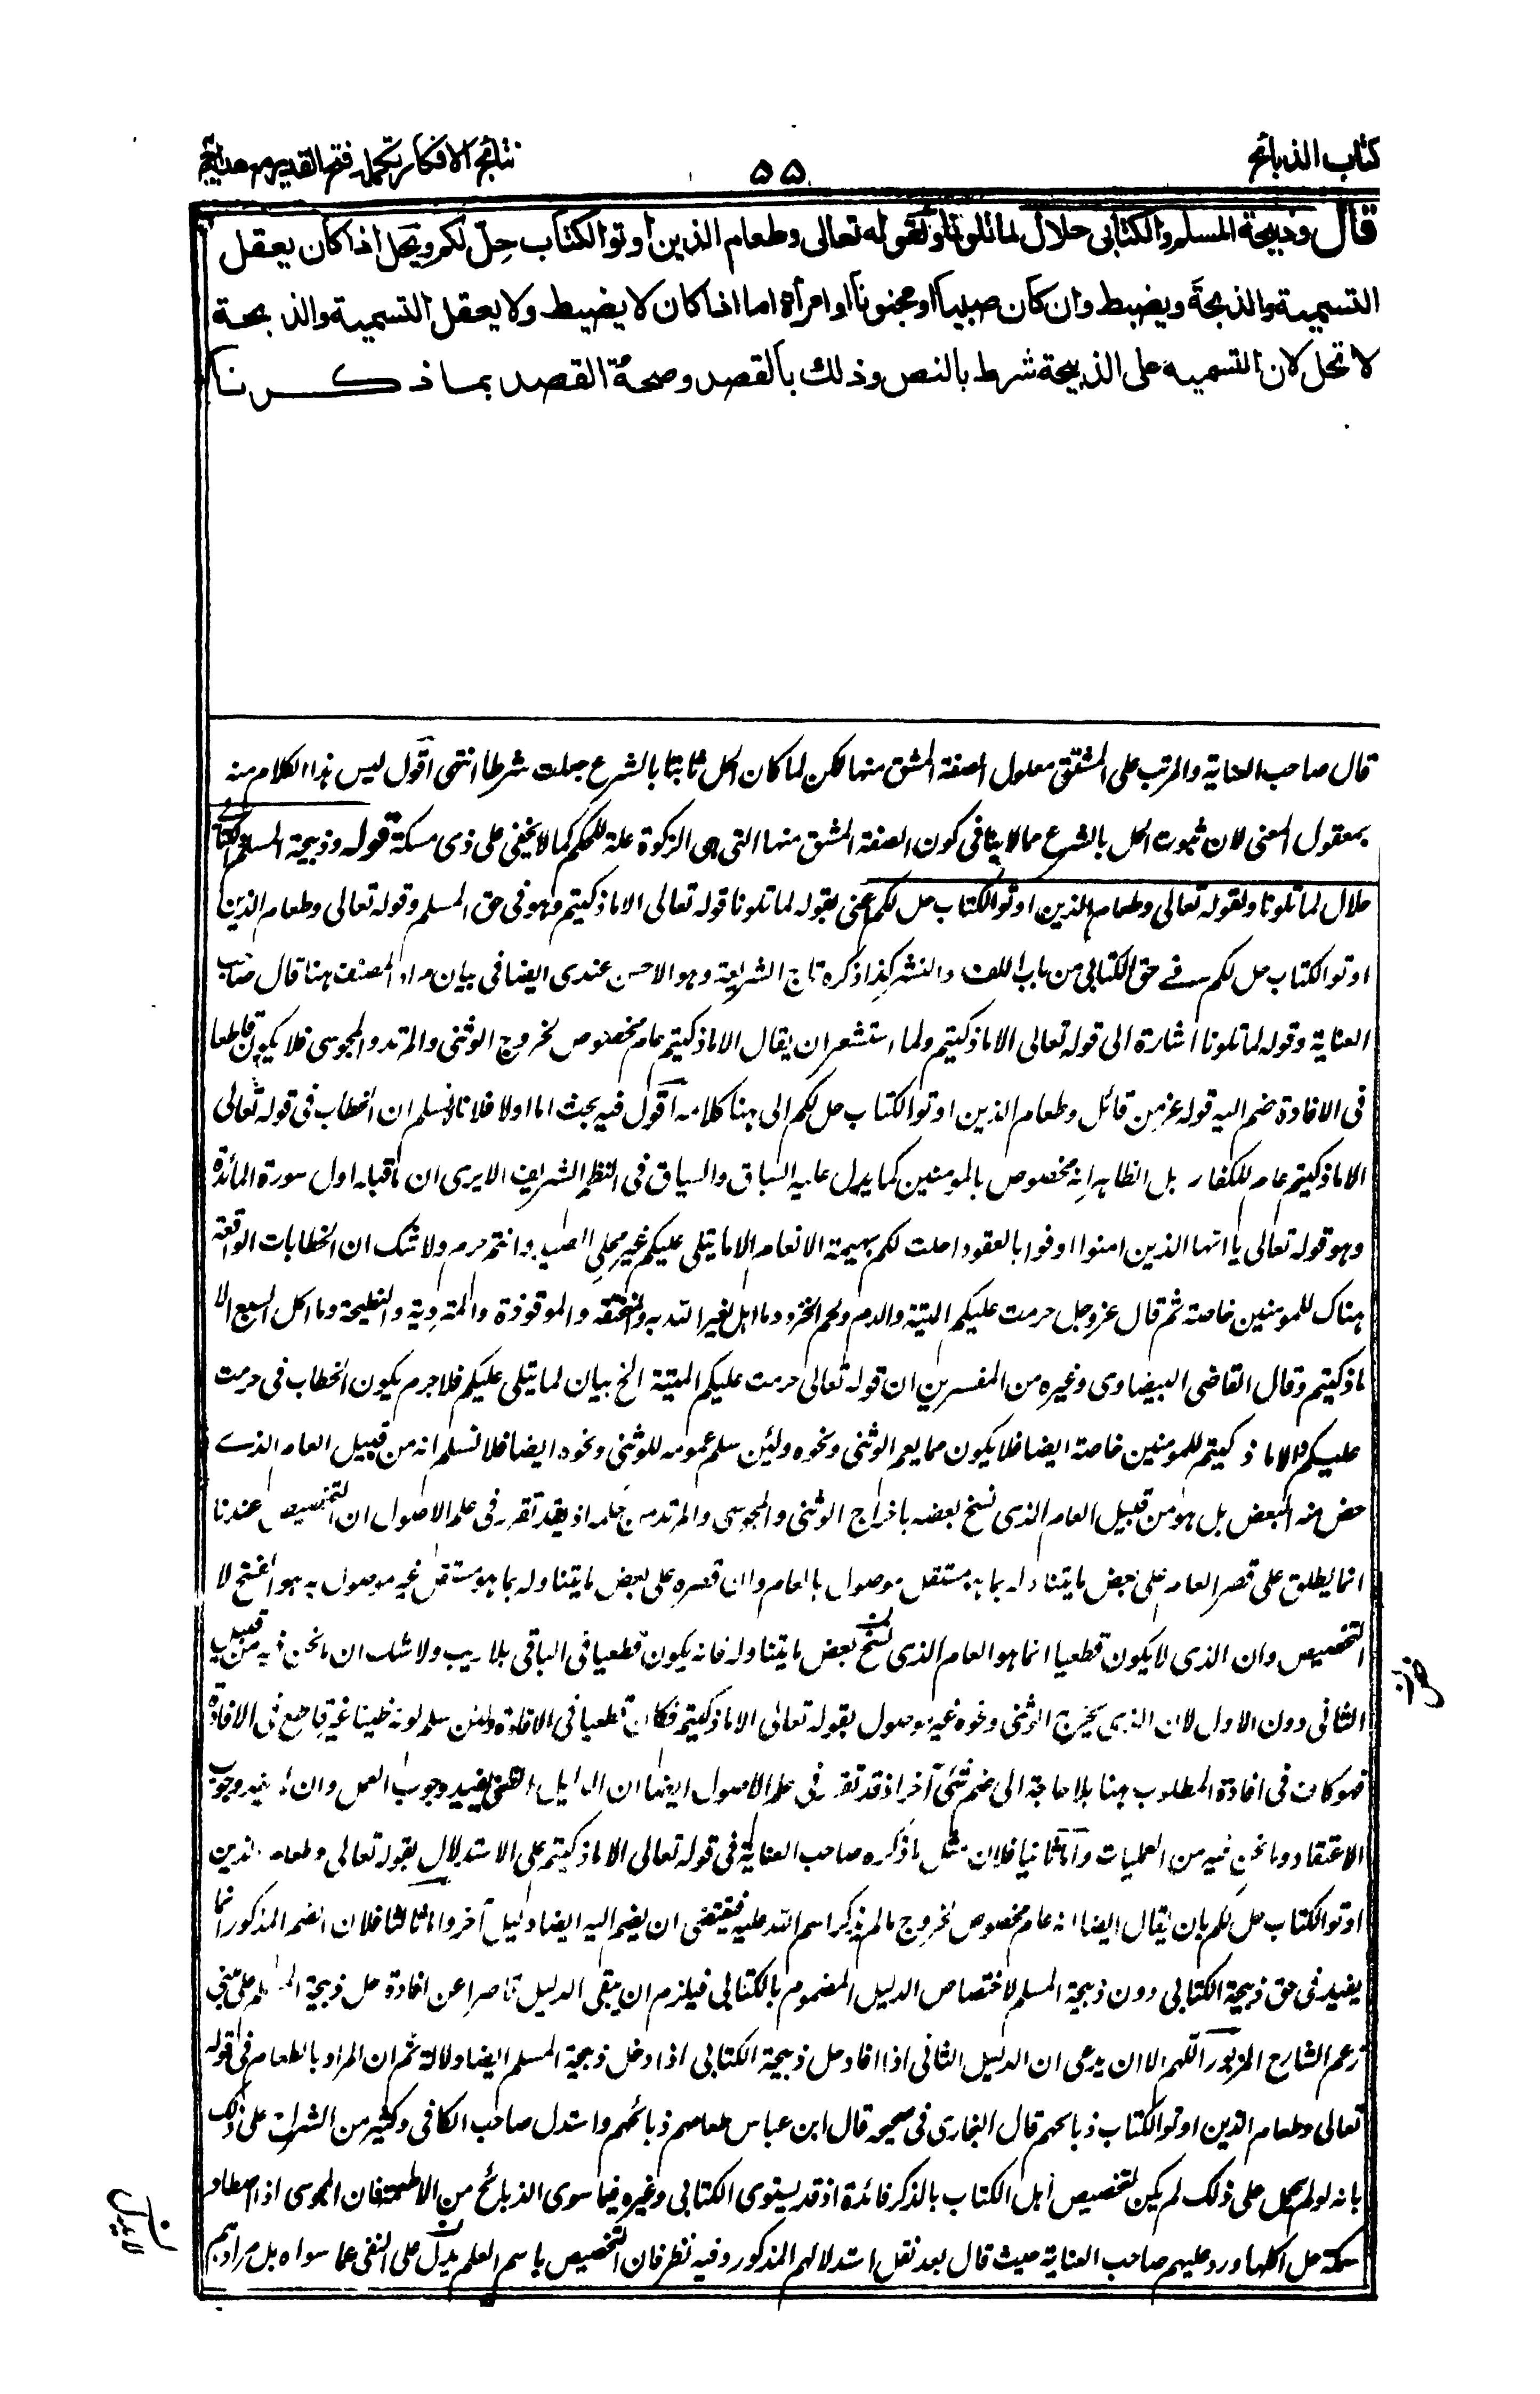 كتاب الذبائح
۵۵
نتائج الافكار تكملہ فتح القدير مع هدايہ
قال وذبيحة المسلم والكتابى حلال لما تلونا ولقوله تعالى وطعام الذين اوتوا الكتاب حِلّ لكم ويحل اذا كان يعقل
التسمية والذبحة ويضبط وان كان صبيا او مجنونا او امرأة اما اذا كان لا يضبط ولا يعقل التسمية والذبحة
لا تحل لان التسميه على الذبيحة شرط بالنص وذلك بالقصد وصحة القصد بما ذكرنا
قال صاحب العناية والمرتب على المشتق معلول الصفة المشتق منها لكن لما كان الحل ثابتا بالشرع جعلت شرطا انتهى اقول ليس هذا الكلام منه
بمعقول المعنى لان ثبوت الحل بالشرع مما لا ينافى كون الصفة المشتق منها التى هى الزكوة علة للحكم كما لا يخفى على ذى مسكة قوله وذبيحة المسلم والكتابى
حلال لما تلونا ولقوله تعالى وطعام الذين اوتوا الكتاب حل لكم اعنى بقوله لما تلونا قوله تعالى الا ما ذكيتم وهو فى حق المسلم وقوله تعالى وطعام الذين
اوتوا الكتاب حل لكم فے حق الكتابى من باب اللف والنشر كذا ذكره تاج الشريعة وهو الاحسن عندى ايضا فى بيان مراد المصنف هنا قال صاحب
العناية وقوله لما تلونا اشارة الى قوله تعالى الا ما ذكيتم ولما استشعر ان يقال الا ما ذكيتم عام مخصوص لخروج الوثنى والمرتد والمجوسى فلا يكون قاطعا
فى الافادة ضم اليه قوله عز من قائل وطعام الذين اوتوا الكتاب حل لكم الى هنا كلامه اقول فيه بحث اما اولا فلانا لا نسلم ان الخطاب فى قوله تعالى
الا ما ذكيتم عام للكفار بل الظاهر انه مخصوص بالمومنين كما يدل عليه السباق والسياق فى النظم الشريف الا يرى ان ما قبله اول سورة المائدة
وهو قوله تعالى يا ايها الذين امنوا اوفوا بالعقود احلت لكم بهيمة الانعام الا ما يتلى عليكم غير محلى الصيد وانتم حرم ولا شك ان الخطابات الواقعة
هناك للمومنين خاصة ثم قال عز وجل حرمت عليكم الميتة والدم ولحم الخنزير وما اهل لغير الله به والمنخنقة والموقوذة والمتردية والنطيحة وما اكل السبع الا
ما ذكيتم وقال القاضى البيضاوى وغيره من المفسرين ان قوله تعالى حرمت عليكم الميتة الخ بيان لما يتلى عليكم فلا جرم يكون الخطاب فى حرمت
عليكم والا ما ذكيتم للمومنين خاصة ايضا فلا يكون مما يعم الوثنى ونحوه ولئن سلم عمومه للوثنى ونحوه ايضا فلا نسلم انه من قبيل العام الذے
خص منه البعض بل هو من قبيل العام الذى نسخ بعضه باخراج الوثنى والمجوسى والمرتد من حكمه اذ قد تقرر فى علم الاصول ان التخصيص عندنا
انما يطلق على قصر العام على بعض ما يتناوله بما هو مستقل موصول بالعام وان قصره على بعض ما يتناوله بما هو مستقل غير موصول به هو النسخ لا
التخصيص وان الذى لا يكون قطعيا انما هو العام الذى نسخ بعض ما يتناوله فانه يكون قطعيا فى الباقى بلا ريب ولا شك ان ما نحن فيه من قبيل
الثانى دون الاول لان الذى يخرج الوثنى ونحوه غير موصول بقوله تعالى الا ما ذكيتم فكان قطعيا فى الافادة ولئن سلم كونه ظنيا غير قاطع فى الافادة
فهو كاف فى افادة المطلوب هنا بلا حاجة الى ضم شئ آخر اذ قد تقرر فى علم الاصول ايضا ان الدليل الظنى يفيد وجوب العمل وان لم يفيد وجوب
الاعتقاد وما نحن فيه من العمليات واما ثانيا فلان مثل ما ذكره صاحب العناية فى قوله تعالى الا ما ذكيتم على الاستدلال بقوله تعالى وطعام الذين
اوتوا الكتاب حل لكم بان يقال ايضا انه عام مخصوص لخروج ما لم يذكر اسم الله عليه فيقتضى ان يضم اليه ايضا دليل آخر واما ثالثا فلان الضم المذكور انما
يفيد فى حق ذبيحة الكتابى دون ذبيحة المسلم لاختصاص الدليل المضموم بالكتابى فيلزم ان يبقى الدليل قاصرا عن افادة حل ذبيحة المسلم على مبنى
زعم الشارح المزبور اللهم الا ان يدعى ان الدليل الثانى اذا افاد حل ذبيحة الكتابى اذا دخل ذبيحة المسلم ايضا دلالة ثم ان المراد بالطعام فى قوله
تعالى وطعام الذين اوتوا الكتاب ذبائحهم قال البخارى فى صحيحه قال ابن عباس طعامهم ذبائحهم واستدل صاحب الكافى وكثير من الشراح على ذلك
بانه لو لم يحمل على ذلك لم يكن لتخصيص اهل الكتاب بالذكر فائدة اذ قد يستوى الكتابى وغيره فيما سوى الذبائح من الاطعمة فان المجوسى اذا اصطاد
سمكة حل اكلها ورد عليهم صاحب العناية حيث قال بعد نقل استدلالهم المذكور وفيه نظر فان التخصيص باسم العلم يدل على النفى عما سواه بل مرادهم